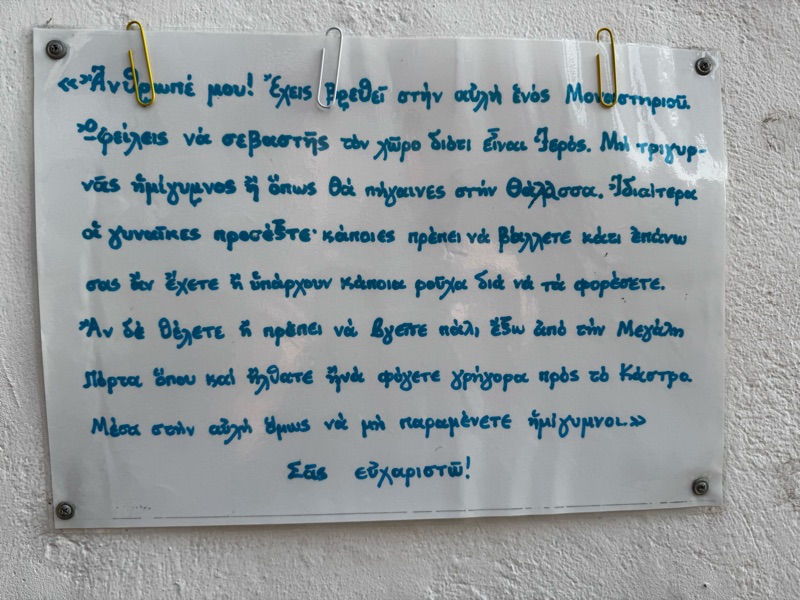 «Ἄνθρωπέ μου! Ἔχεις βρεθεῖ στήν αὐλή ἑνός Μοναστηριοῦ.
Ὀφείλεις νά σεβαστῆς τόν χῶρο διότι εἶναι Ἱερός. Μή τριγυρ-
νᾶς ἡμίγυμνος ἤ ὅπως θά πήγαινες στήν Θάλασσα. Ἰδιαίτερα
οἱ γυναῖκες προσέξτε· κάποιες πρέπει νά βάλλετε κάτι ἐπάνω
σας ἄν ἔχετε ἤ ὑπάρχουν κάποια ροῦχα διά νά τά φορέσετε.
Ἄν δέ θέλετε ἤ πρέπει νά βγεῖτε πάλι ἔξω ἀπό τήν Μεγάλη
Πόρτα ὅπου καί ἤλθατε ἤ νά φύγετε γρήγορα πρός τό Κάστρο.
Μέσα στήν αὐλή ὅμως νά μή παραμένετε ἡμίγυμνοι.»
Σᾶς εὐχαριστῶ!